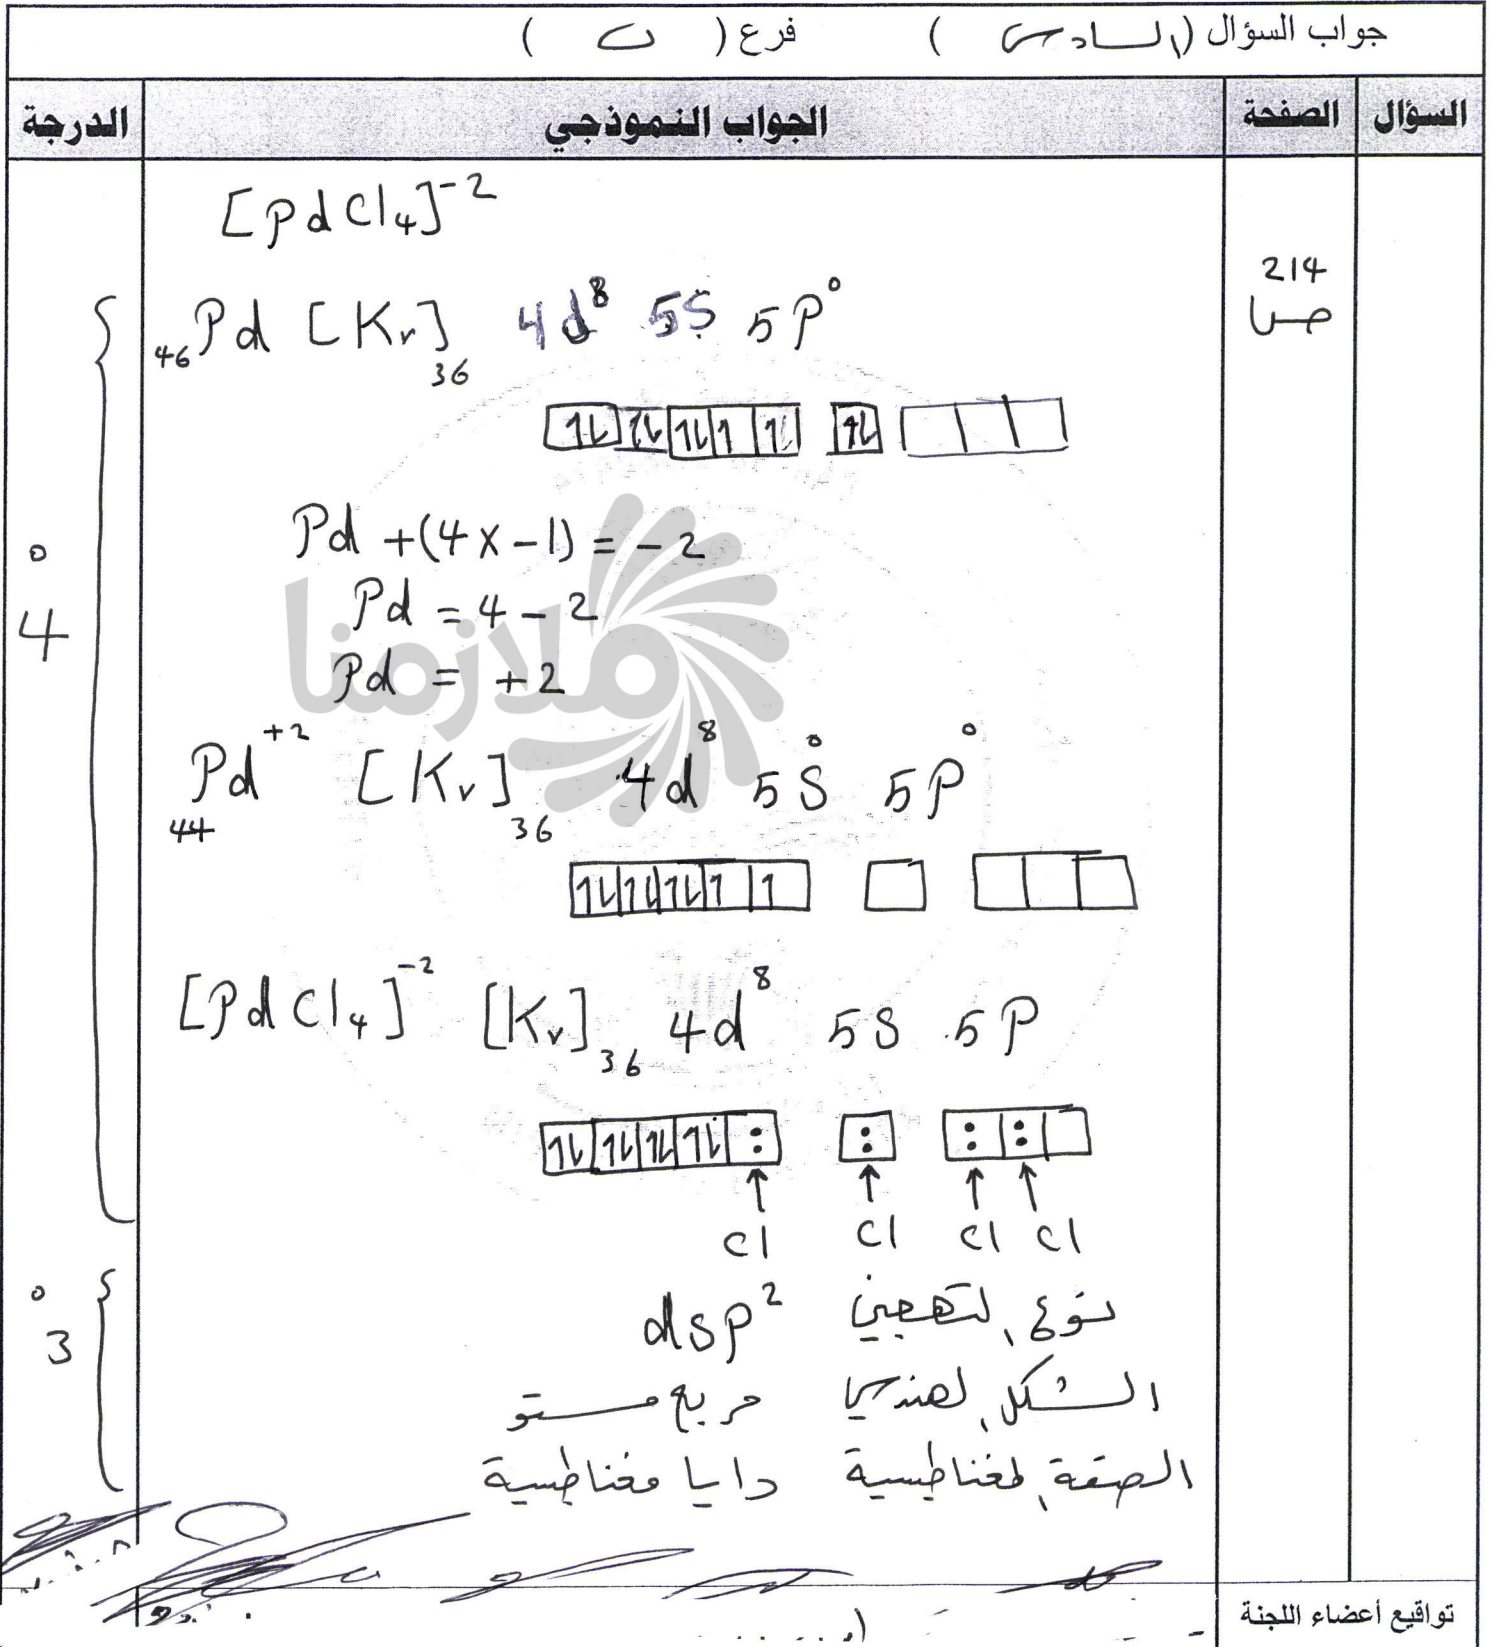 جواب السؤال (السادس) فرع ( ب )
السؤال الصفحة الجواب النموذجي الدرجة
[PdCl₄]⁻²
214
ص
₄₆Pd [Kr]₃₆ 4d⁸ 5S 5P⁰
Pd +(4x-1) = -2
Pd = 4 - 2
Pd = +2
4
ملازمنا
₄₄Pd⁺² [Kr]₃₆ 4d⁸ 5S⁰ 5P⁰
[PdCl₄]⁻² [Kr]₃₆ 4d⁸ 5S 5P
Cl Cl Cl Cl
نوع التهجين dsp²
3
الشكل الهندسي مربع مستو
الصفة المغناطيسية دايا مغناطيسية
تواقيع أعضاء اللجنة